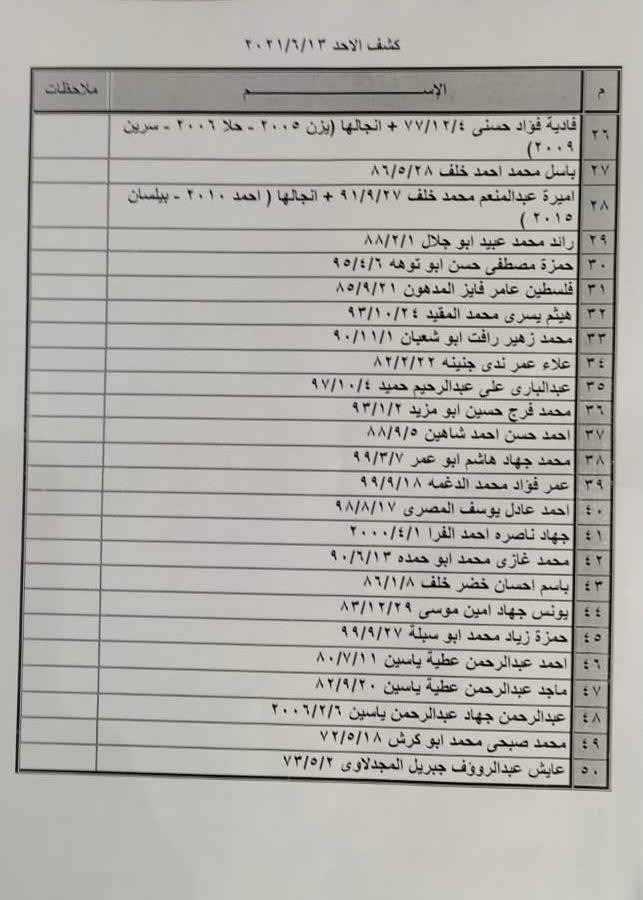 كشف الاحد ٢٠٢١/٦/١٣
م الإســـــــــم ملاحظات
٢٦ فادية فؤاد حسنى ٧٧/١٢/٤ + انجالها (يزن ٢٠٠٥ - حلا ٢٠٠٦ - سرين
٢٠٠٩)
٢٧ باسل محمد احمد خلف ٨٦/٥/٢٨
٢٨ اميرة عبدالمنعم محمد خلف ٩١/٩/٢٧ + انجالها ( احمد ٢٠١٠ - بيلسان
٢٠١٥ )
٢٩ رائد محمد عبيد ابو جلال ٨٨/٢/١
٣٠ حمزة مصطفى حسن ابو توهه ٩٥/٤/٦
٣١ فلسطين عامر فايز المدهون ٨٥/٩/٢١
٣٢ هيثم يسرى محمد المقيد ٩٣/١٠/٢٤
٣٣ محمد زهير رافت ابو شعبان ٩٠/١١/١
٣٤ علاء عمر ندى جنينه ٨٢/٢/٢٢
٣٥ عبدالبارى على عبدالرحيم حميد ٩٧/١٠/٤
٣٦ محمد فرج حسين ابو مزيد ٩٣/١/٢
٣٧ احمد حسن احمد شاهين ٨٨/٩/٥
٣٨ محمد جهاد هاشم ابو عمر ٩٩/٣/٧
٣٩ عمر فؤاد محمد الدغمه ٩٩/٩/١٨
٤٠ احمد عادل يوسف المصرى ٩٨/٨/١٧
٤١ جهاد ناصره احمد الفرا ٢٠٠٠/٤/١
٤٢ محمد غازى محمد ابو حمده ٩٠/٦/١٣
٤٣ باسم احسان خضر خلف ٨٦/١/٨
٤٤ يونس جهاد امين موسى ٨٣/١٢/٢٩
٤٥ حمزة زياد محمد ابو سبلة ٩٩/٩/٢٧
٤٦ احمد عبدالرحمن عطية ياسين ٨٠/٧/١١
٤٧ ماجد عبدالرحمن عطية ياسين ٨٢/٩/٢٠
٤٨ عبدالرحمن جهاد عبدالرحمن ياسين ٢٠٠٦/٢/٦
٤٩ محمد صبحى محمد ابو كرش ٧٢/٥/١٨
٥٠ عايش عبدالرووف جبريل المجدلاوى ٧٣/٥/٢